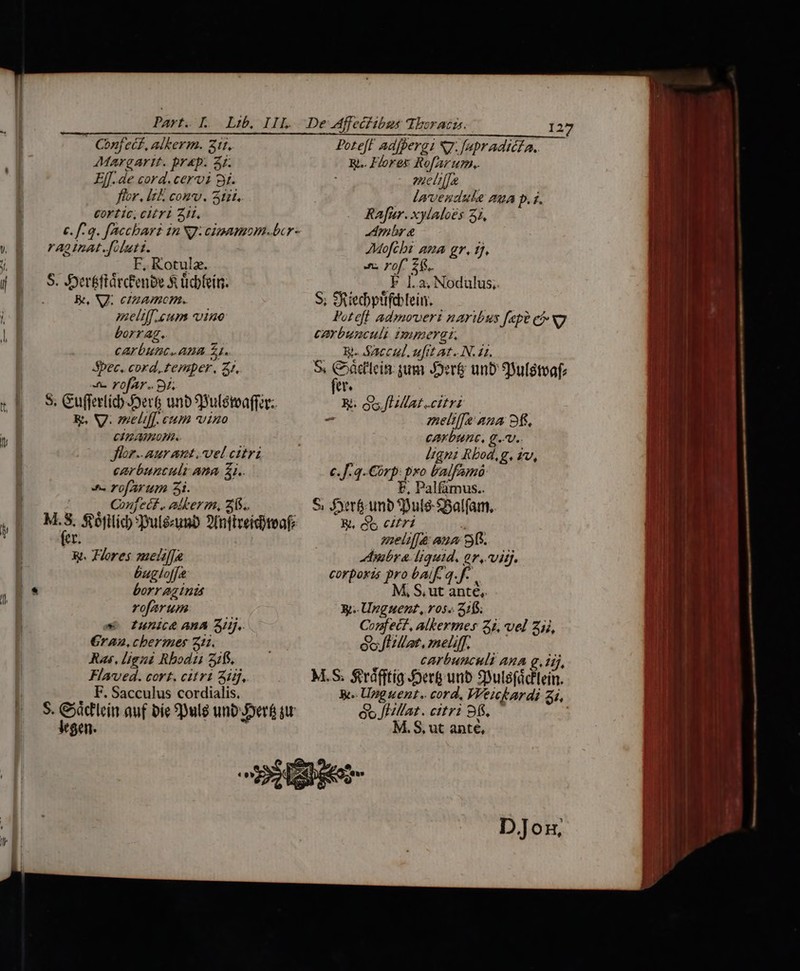 Part. I. Lib. III. De Affectibus Thoracis. 127
Confect, alkerm. ʒii.
Margarit. præp. ʒi.
Ess. de cord. cervi ℈i.
flor. lil. conv. ʒiii.
cortic, citri ʒii.
c. s. q. sacchari in 🜄. cinamom. bor-
raginat. soluti.
F. Rotulæ.
S. Hertzstärckende Küchlein.
℞. 🜄. cinamom.
meliss. cum vino
borrag.
carbunc. ana ℥i.
Spec. cord. temper. ʒi.
rosar. ℈i.
S. Eusserlich Hertz und Pulswasser.
℞. 🜄. meliss. cum vino
cinamom.
flor. aurant. vel citri
carbunculi ana ℥i.
rosarum ℥i.
Confect. alkerm. ʒß.
M. S. Köstlich Puls- und Anstreichwas-
ser.
℞. Flores melissæ
buglossæ
borraginis
rosarum
tunicæ ana ʒiij.
Gran. chermes ʒii.
Ras. ligni Rhodii ʒiß.
Flaved. cort. citri ʒiij.
F. Sacculus cordialis.
S. Säcklein auf die Puls und Hertz zu
legen.
Potest adspergi 🜄. supradicta.
℞. Flores Rosarum.
melissæ
lavendulæ ana p. i.
Rasur. xylaloës ʒi,
Ambræ
Moschi ana gr. ij.
ros. ʒß.
F. l. a. Nodulus.
S. Riechpüschlein.
Potest admoveri naribus sæpè & 🜄
carbunculi immergi.
℞. Saccul. usitat. N. ii.
S. Säcklein zum Hertz und Pulswas-
ser.
℞. stillat. citri
melissæ ana ℈ß,
carbunc. g. v.
ligni Rhod. g. iv,
c. s. q. Corp. pro balsamo
F. Palsamus.
S. Hertz und Puls-Balsam.
℞. citri
melissæ ana ℈ß.
Ambræ liquid. gr. viij.
corporis pro bals. q. s.
M. S. ut antè.
℞. Unguent. ros. ʒiß.
Confect. alkermes ʒi, vel ʒii,
stillat. meliss.
carbunculi ana g. iij,
M. S. Kräfftig Hertz und Pulssäcklein.
℞. Unguent. cord. Weickardi ʒi,
stillat. citri ℈ß.
M. S. ut antè.
D. Joh,